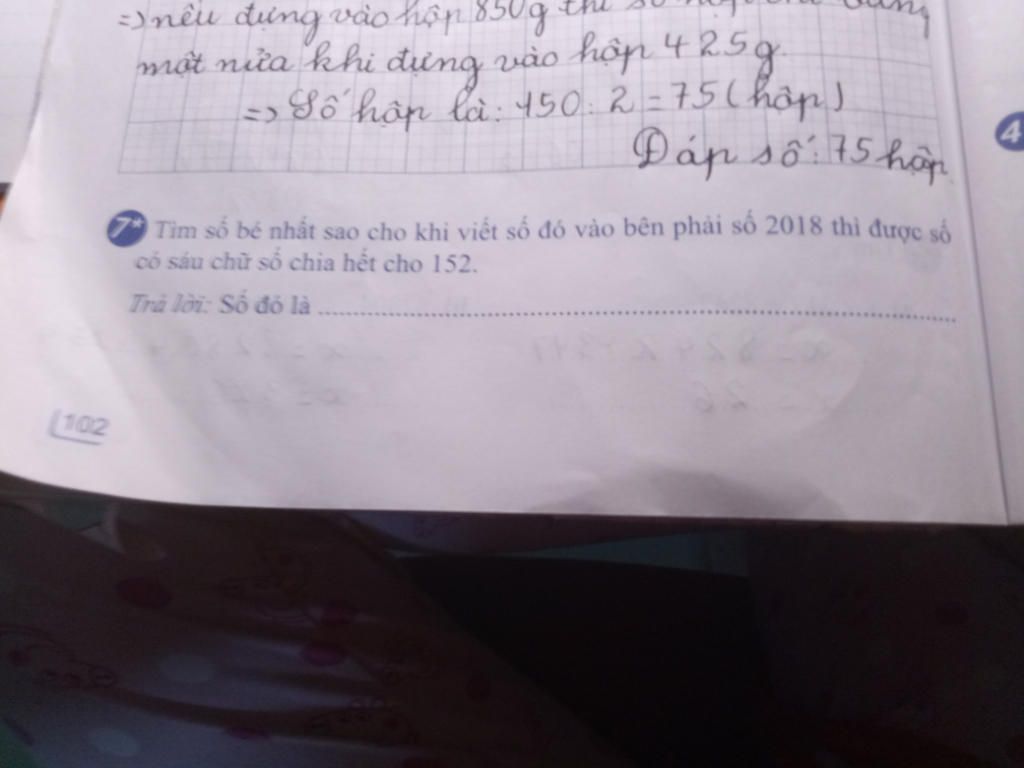 => nếu đựng vào hộp 850g thì số
một nửa khi đựng vào hộp 425g.
=> Số hộp là: 150 : 2 = 75 (hộp)
Đáp số: 75 hộp.
4
7* Tìm số bé nhất sao cho khi viết số đó vào bên phải số 2018 thì được số
có sáu chữ số chia hết cho 152.
Trả lời: Số đó là
102